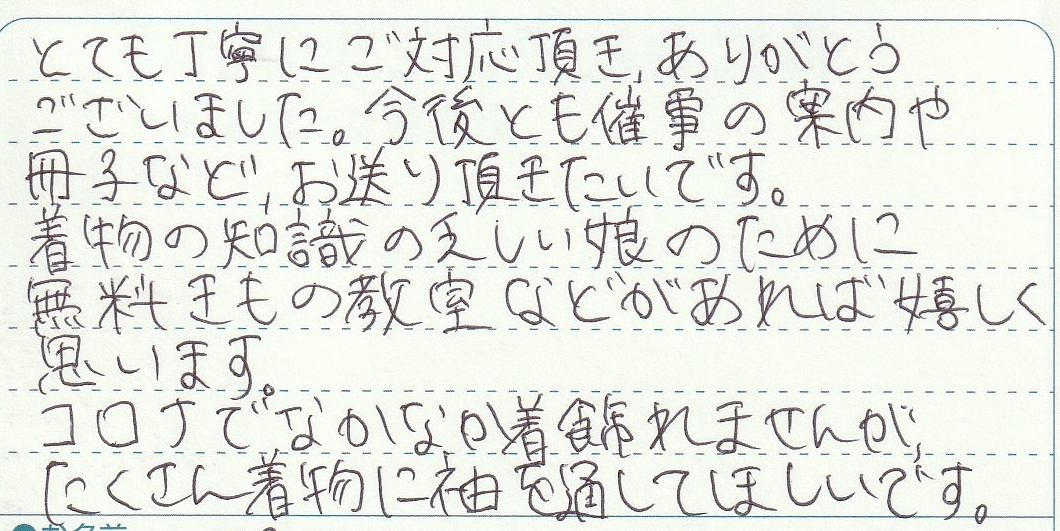 とても丁寧にご対応頂き、ありがとう
ございました。今後とも催事の案内や
冊子など、お送り頂きたいです。
着物の知識の乏しい娘のために
無料きもの教室などがあれば嬉しく
思います。
コロナでなかなか着飾れませんが、
たくさん着物に袖を通してほしいです。